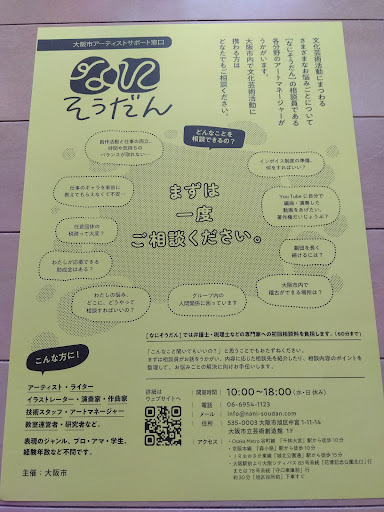 大阪市アーティストサポート窓口
なに
そうだん
文化芸術活動にまつわる
さまざまなお悩みごとについて
[なにそうだん]の相談員である
各分野のアートマネージャーが
うかがいます。
大阪市内で文化芸術活動に
携わる方は
どなたでもご相談ください。
どんなことを
相談できるの?
創作活動と仕事の両立。
時間や気持ちの
バランスが取れない
インボイス制度の準備、
何をすればいい?
仕事のギャラを事前に
教えてもらえなくて不安…
YouTubeに自分で
編曲・演奏した
動画をあげたい。
著作権だいじょうぶ?
任意団体の
税務って大変?
劇団を長く
続けるには?
わたしが応募できる
助成金はある?
大阪市内で
稽古ができる場所は?
わたしの悩み、
どこに、どうやって
相談すればいいの?
グループ内の
人間関係に困っています
まずは
一度
ご相談ください。
[なにそうだん]では弁護士・税理士などの専門家への初回相談料を負担します。(60分まで)
「こんなこと聞いてもいいの?」と思うことでもおたずねください。
まずは相談員がお話をうかがい、内容に応じた相談先を紹介したり、相談内容のポイントを
整理して、お悩みごとの解決に向けお手伝いします。
こんな方に!
アーティスト・ライター
イラストレーター・演奏家・作曲家
技術スタッフ・アートマネージャー
教室運営者・研究者など。
表現のジャンル、プロ・アマ・学生、
経験年数など不問です。
主催:大阪市
詳細は
ウェブサイトへ
開室時間 10:00〜18:00(水・日 休み)
電話 06-6954-1123
メール info@nani-soudan.com
住所 535-0003 大阪市旭区中宮 1-11-14
大阪市立芸術創造館 1F
アクセス ・Osaka Metro 谷町線 「千林大宮」駅から徒歩10分
・京阪本線 「森小路」駅から徒歩10分
・JRおおさか東線 「城北公園通」駅から徒歩15分